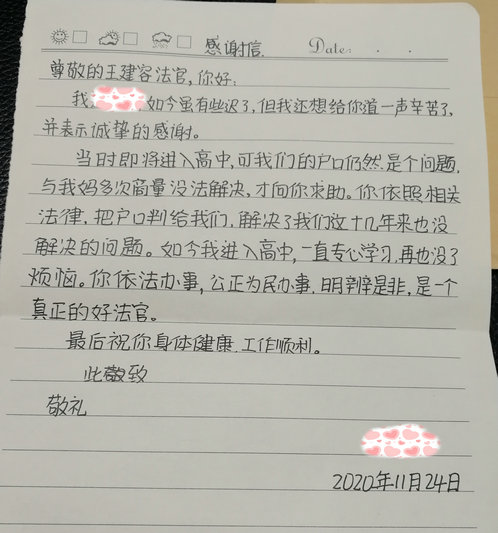 感谢信 Date:
尊敬的王建容法官,你好:
我 ,如今虽有些迟了,但我还想给你道一声辛苦了,
并表示诚挚的感谢。
当时即将进入高中,可我们的户口仍然是个问题,
与我妈多次商量没法解决,才向你求助。你依照相关
法律,把户口判给我们,解决了我们这十几年来也没
解决的问题。如今我进入高中,一直专心学习,再也没了
烦恼。你依法办事,公正为民办事,明辨是非,是一个
真正的好法官。
最后祝你身体健康,工作顺利。
此敬致
敬礼
2020年11月24日